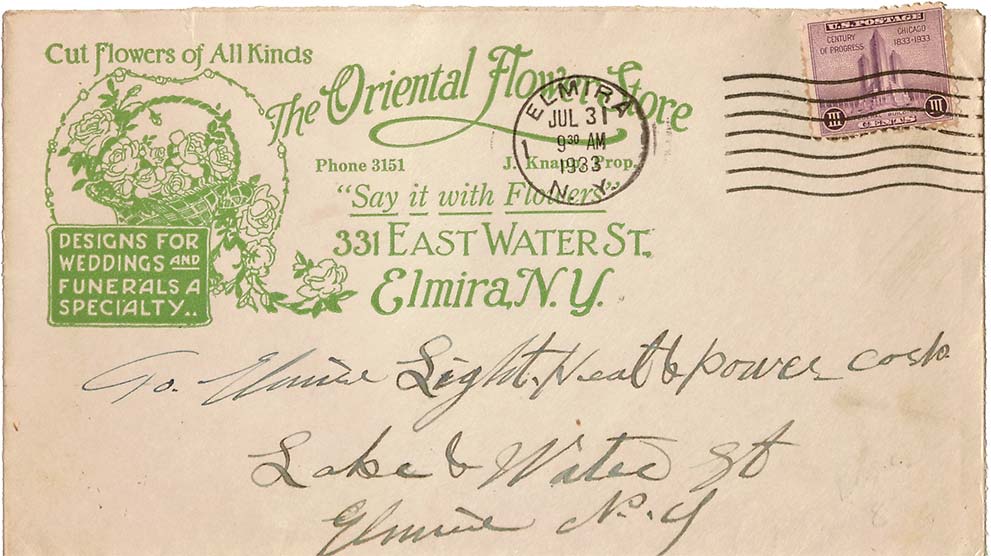 Cut Flowers of All Kinds
The Oriental Flower Store
Phone 3151 J. Knapp, Prop.
"Say it with Flowers"
331 EAST WATER ST,
Elmira, N.Y.
DESIGNS FOR
WEDDINGS AND
FUNERALS A
SPECIALTY..
ELMIRA
JUL 31
9 30 AM
1933
N. Y.
1
U.S. POSTAGE
CENTURY OF PROGRESS
CHICAGO 1833-1933
III III
CENTS
To. Elmira Light, Heat & Power Corp.
Lake & Water St
Elmira N.Y